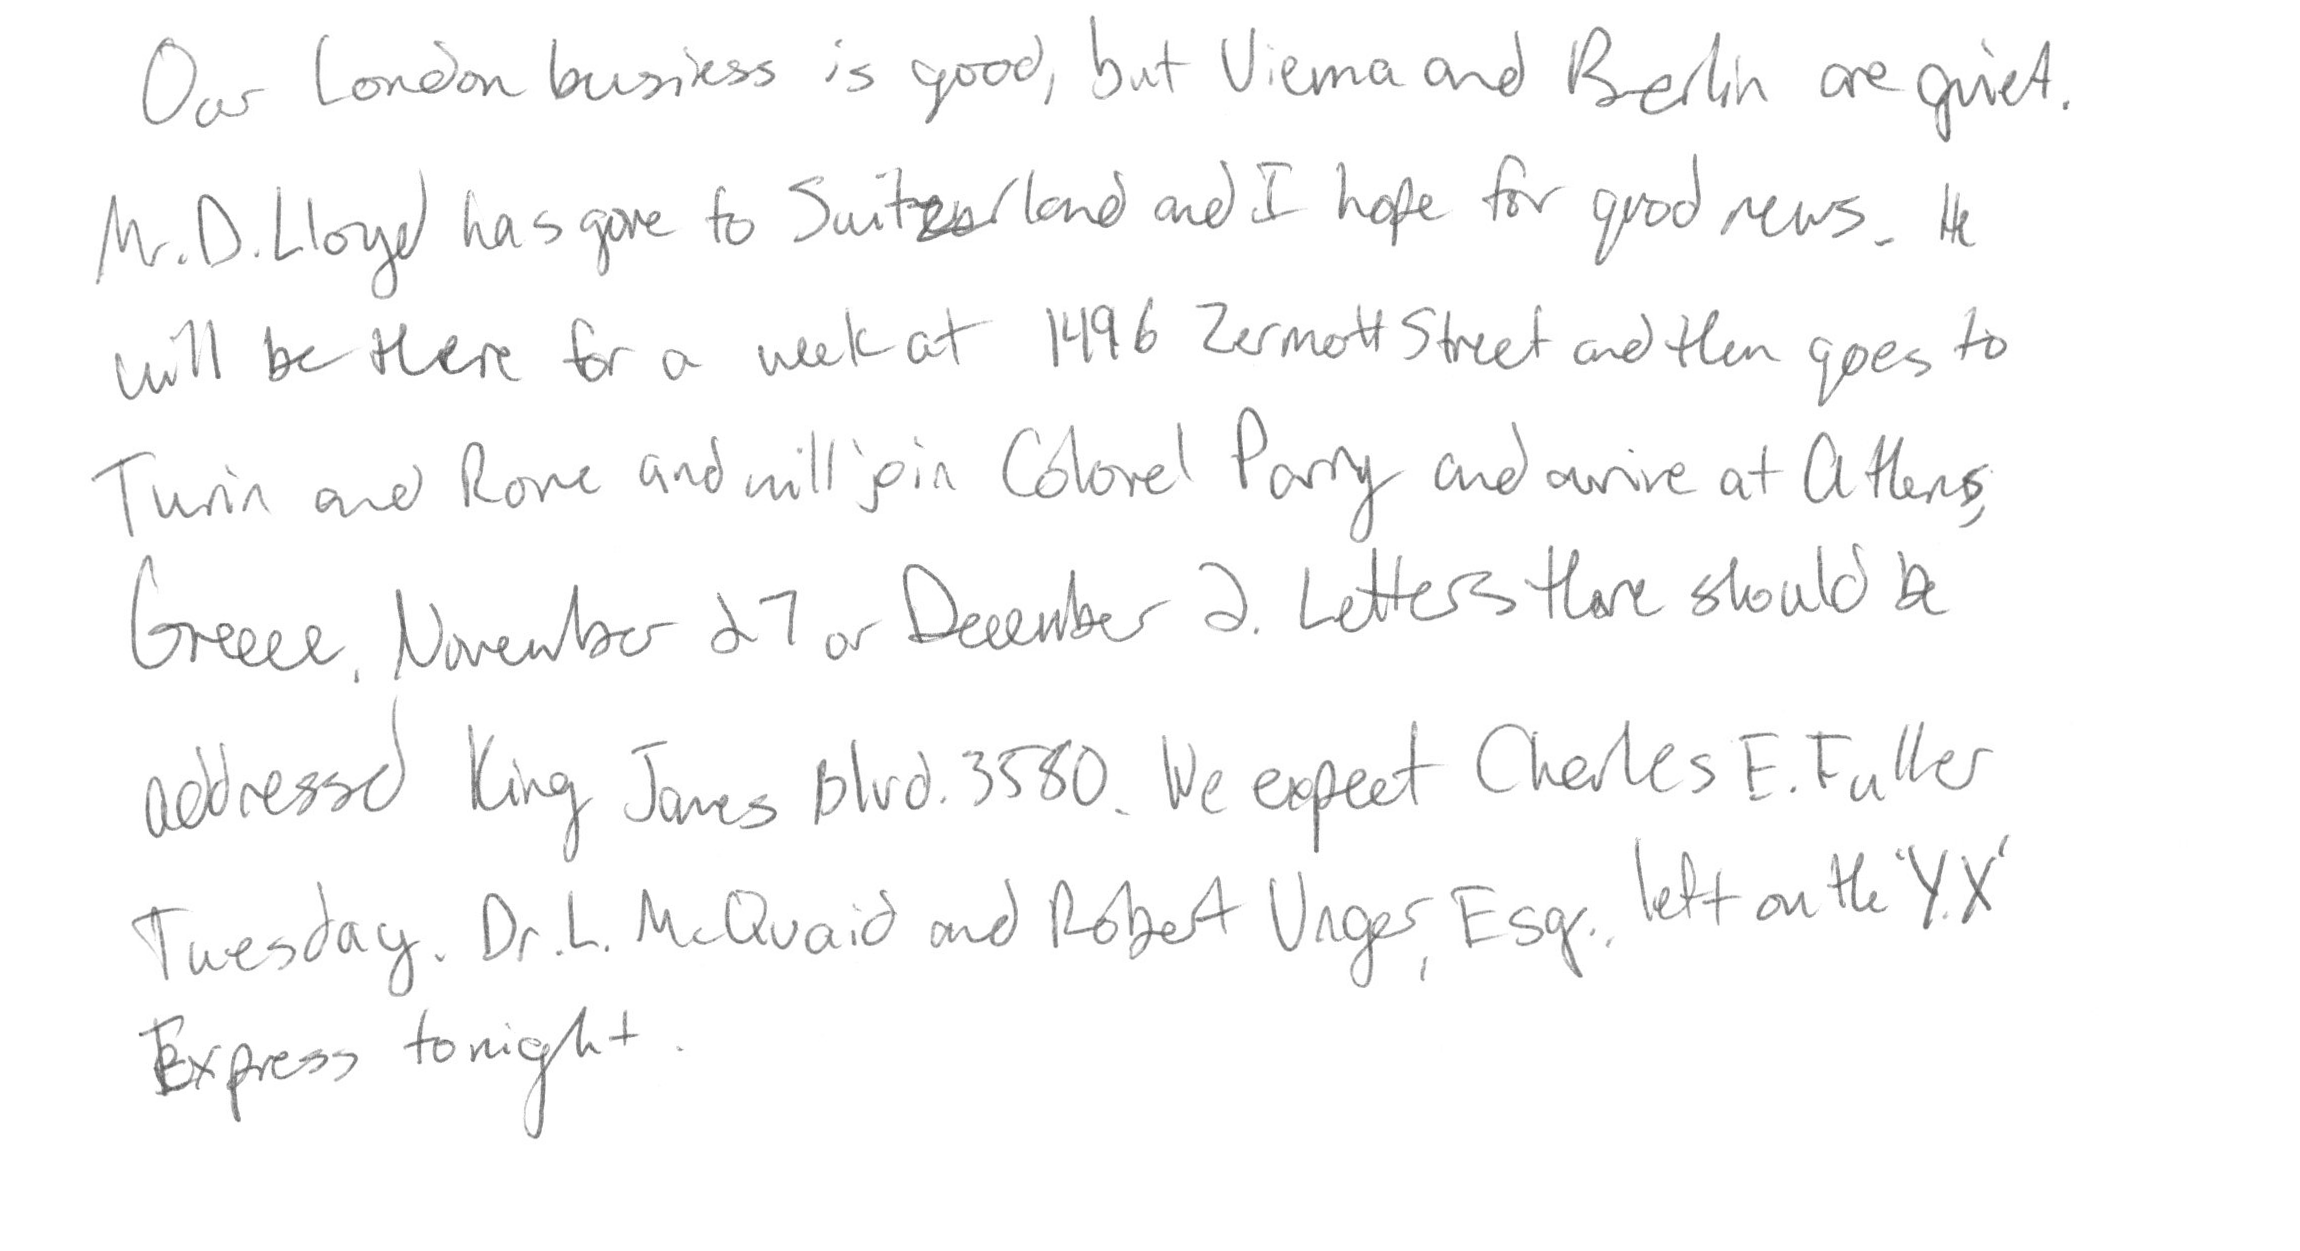 Our London business is good, but Vienna and Berlin are quiet.
Mr. D. Lloyd has gone to Switzerland and I hope for good news. He
will be there for a week at 1496 Zermott Street and then goes to
Turin and Rome and will join Colonel Parry and arrive at Athens,
Greece, November 27 or December 2. Letters there should be
addressed King James Blvd. 3580. We expect Charles E. Fuller
Tuesday. Dr. L. McQuaid and Robert Unger, Esq., left on the 'Y.X'
Express tonight.